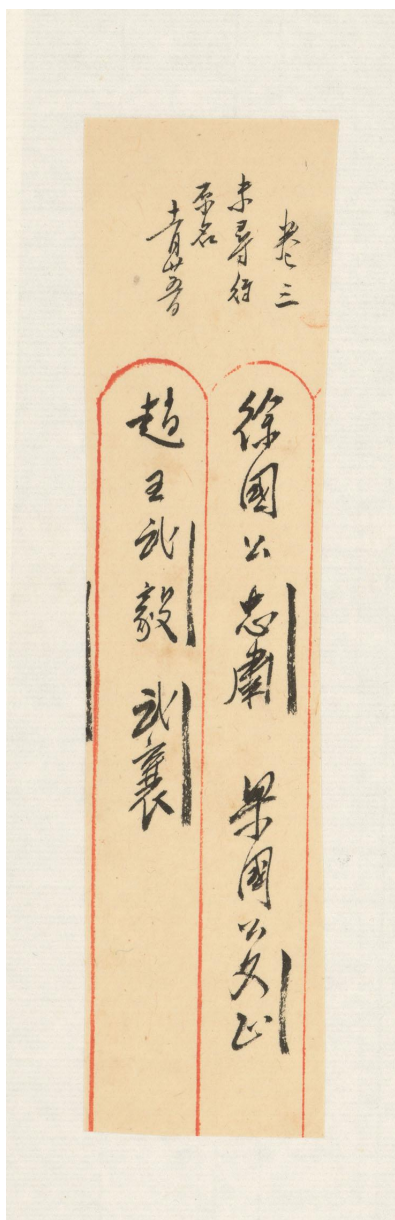 卷三
未尋得
原名
十一月廿五日
徐國公忠肅 梁國公文正
趙王武毅 武襄